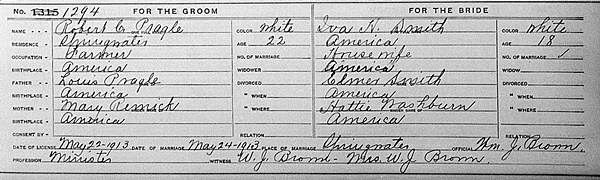 No. 1315 1294 FOR THE GROOM FOR THE BRIDE
NAME Robert C. Pragle COLOR White Iva H. Smith COLOR White
RESIDENCE AGE 22 America AGE 18
OCCUPATION Farmer NO. OF MARRIAGE House wife NO. OF MARRIAGE 1
BIRTHPLACE America WIDOWER America WIDOW
FATHER Louis Pragle DIVORCED Elmer Smith DIVORCED
BIRTHPLACE America " WHEN America " WHEN
MOTHER Mary Resseck " WHERE Hattie Washburn " WHERE
BIRTHPLACE America America
CONSENT BY RELATION RELATION
DATE OF LICENSE May 22-1913 DATE OF MARRIAGE May 24-1913 PLACE OF MARRIAGE OFFICIAL Wm. J. Brown
PROFESSION Minister WITNESS W. J. Brown - Mrs. W. J. Brown